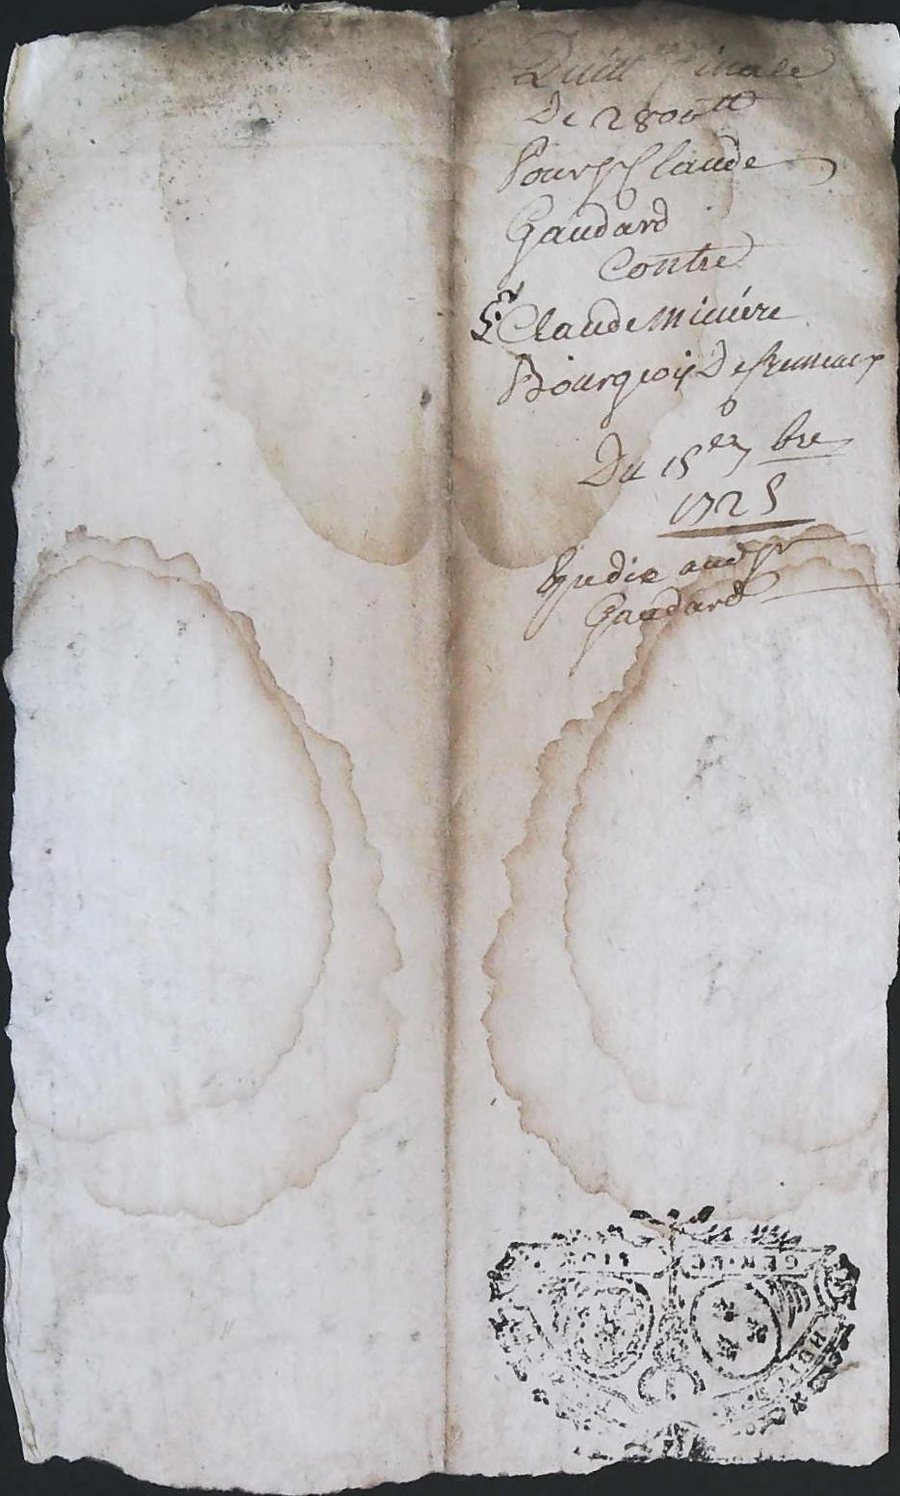 Quitt finale
De 2800tt
Pour Sr Claude
Gaudard
Contre
Sr Claude Miniére
Bourgeois De
Du 15e 7bre
1725
Expedié aud Sr
Gaudard